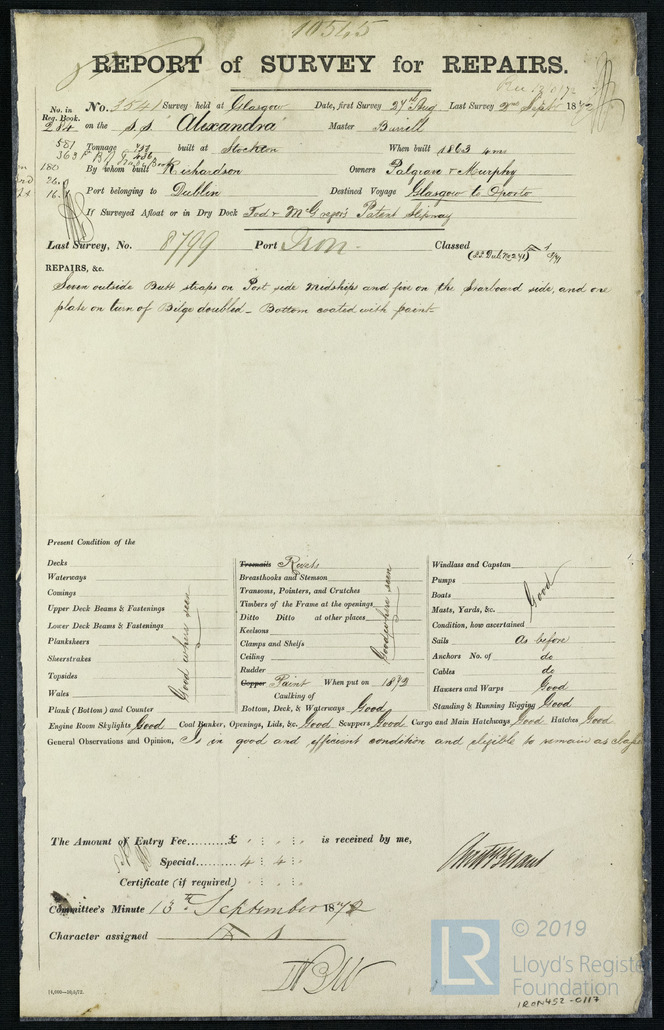 10545
REPORT of SURVEY for REPAIRS.
No. in Reg. Book. No. 3541 Survey held at Glasgow Date, first Survey 27th Aug Last Survey 2nd Sept 1872
284 on the S.S. "Alexandra" Master Burrell
Tonnage built at Stockton When built 1863 4mo
By whom built Richardson Owners Palgrave & Murphy
Port belonging to Dublin Destined Voyage Glasgow to Oporto
If Surveyed Afloat or in Dry Dock Tod & McGregor's Patent Slipway
Last Survey, No. 8799 Port Iron Classed
REPAIRS, &c.
Seven outside Butt straps on Port side Midships and five on the Starboard side, and one
plate on turn of Bilge doubled - Bottom coated with paint
Present Condition of the
Decks
Waterways
Comings
Upper Deck Beams & Fastenings
Lower Deck Beams & Fastenings
Planksheers
Sheerstrakes
Topsides
Wales
Plank (Bottom) and Counter
Good where seen
Treenails Rivets
Breasthooks and Stemson
Transoms, Pointers, and Crutches
Timbers of the Frame at the openings
Ditto Ditto at other places
Keelsons
Clamps and Shelfs
Ceiling
Rudder
Good where seen
Copper Paint When put on 1872
Caulking of
Bottom, Deck, & Waterways Good
Windlass and Capstan
Pumps
Boats
Masts, Yards, &c.
Good
Condition, how ascertained
Sails As before
Anchors No. of do
Cables do
Hawsers and Warps Good
Standing & Running Rigging Good
Engine Room Skylights Good Coal Bunker, Openings, Lids, &c. Good Scuppers Good Cargo and Main Hatchways Good Hatches Good
General Observations and Opinion, Is in good and efficient condition and eligible to remain as
The Amount of Entry Fee..........£ : : is received by me,
Special......... 4 : 4 :
Certificate (if required) : :
Committee's Minute 13th September 1872
Character assigned
© 2019
LR
Lloyd's Register
Foundation
IRON452-0117